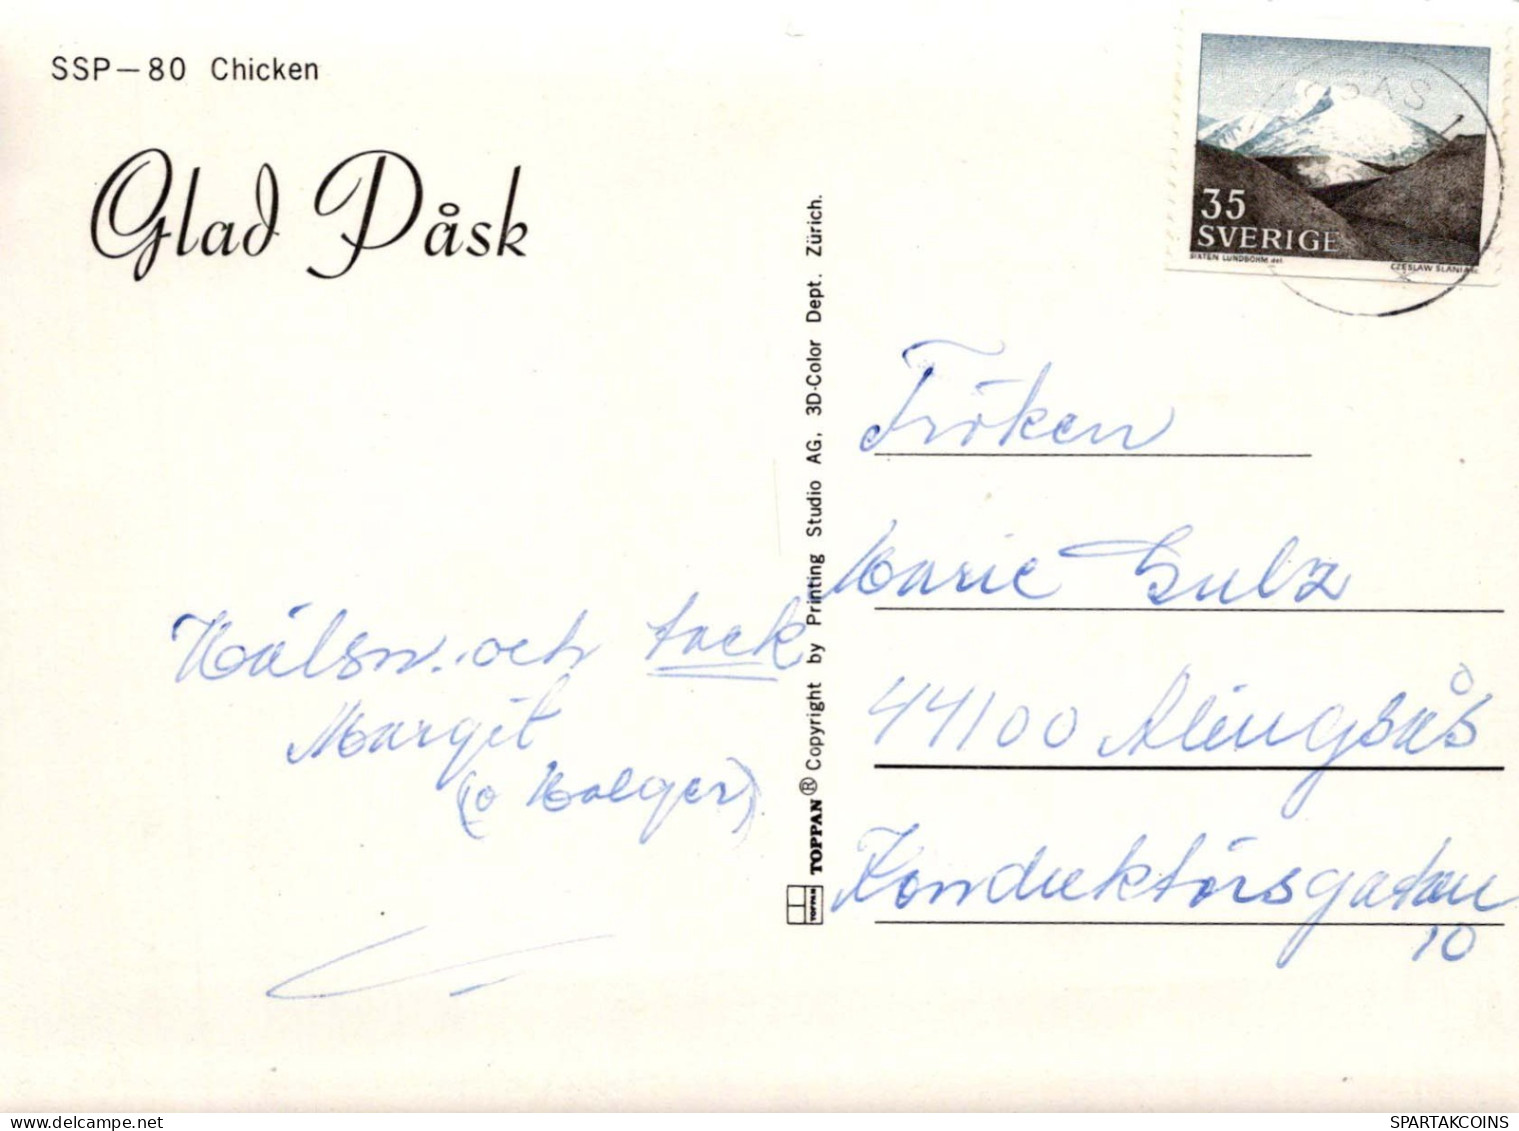 SSP—80 Chicken
Glad Påsk
Hälsn. och tack
Margit
(o Holger)
TOPPAN® Copyright by Printing Studio AG, 3D-Color Dept. Zürich.
TOPPAN
35
SVERIGE
SIXTEN LUNDBOHM del.
CZESLAW SLANIA sc.
Fröken
Marie Sulz
44100 Alingsås
Konduktörsgatan
10
SPARTAKCOINS
delcampe.net